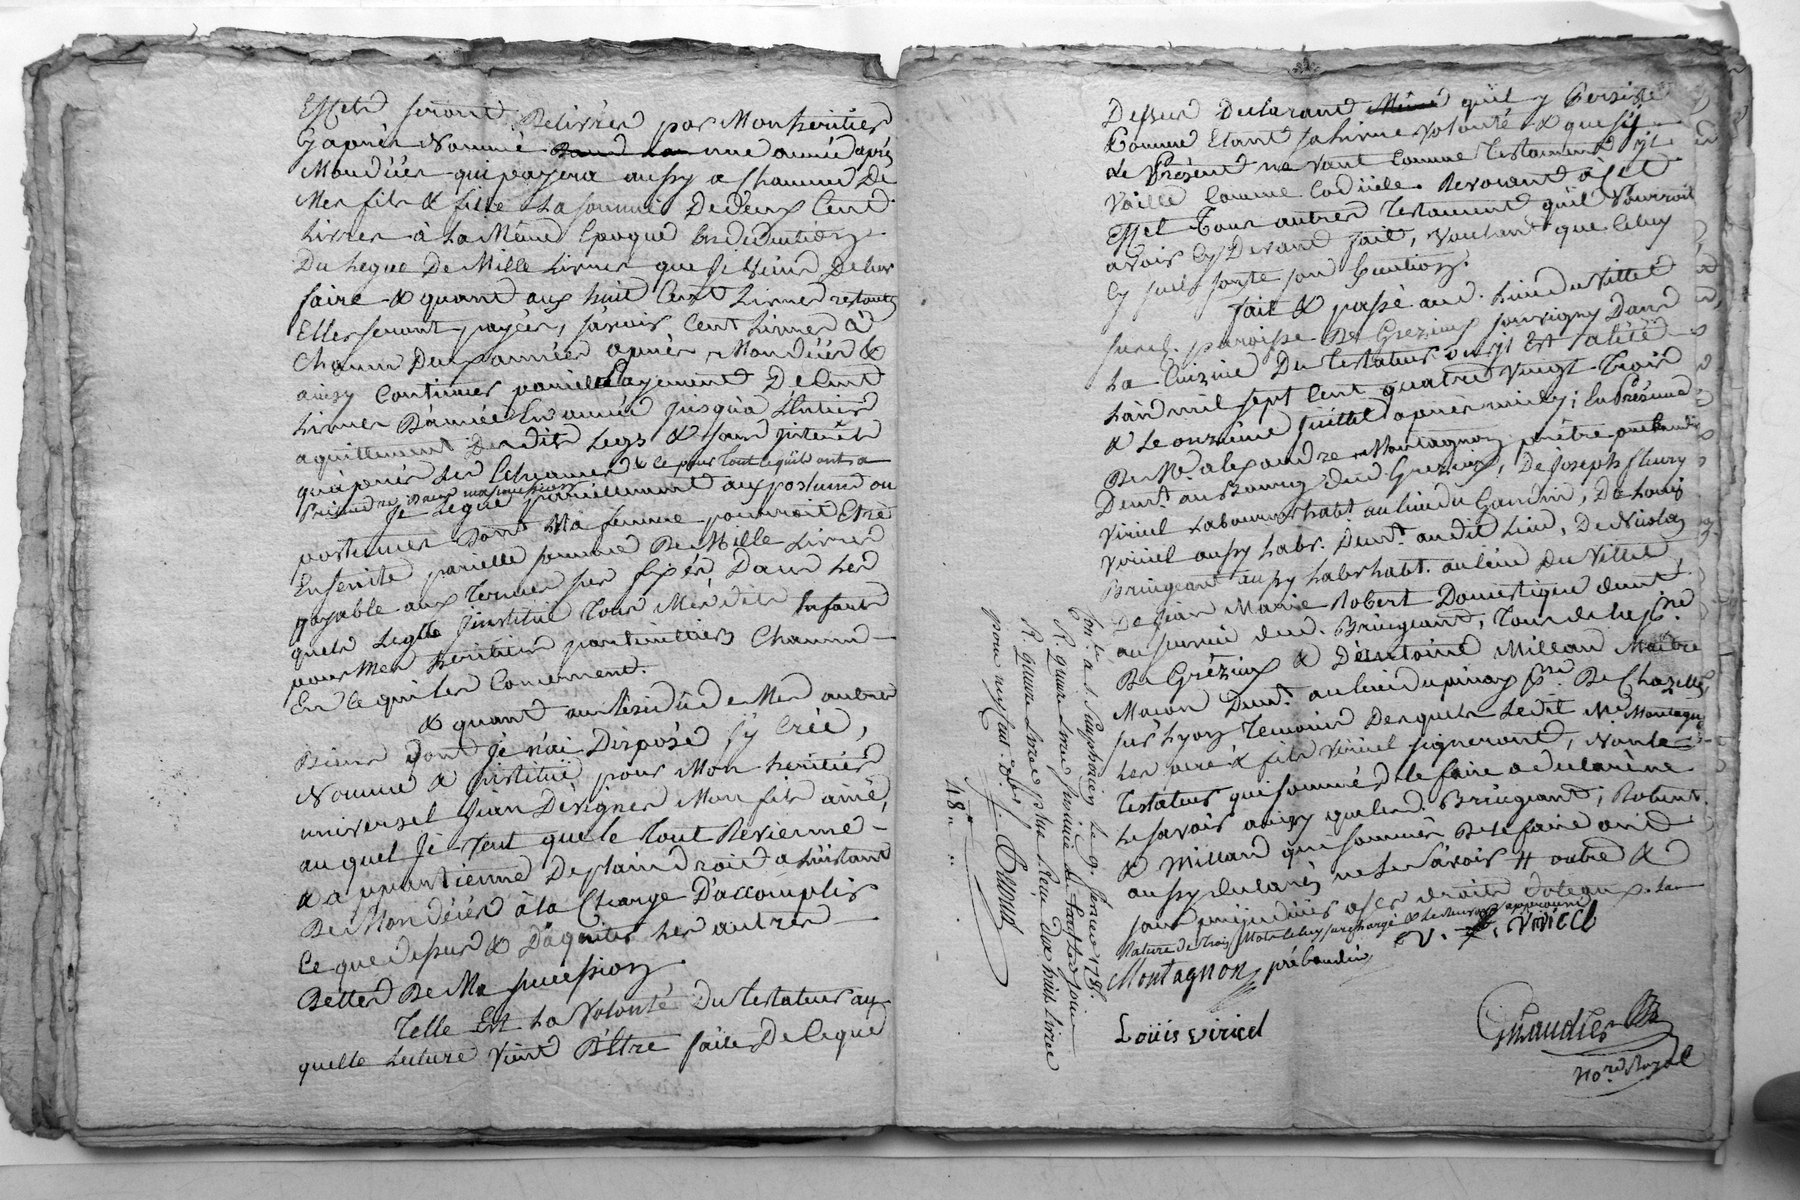 Effets seront Delivrés par Mon heritier
Cy apres Nommé une année après
Mon décès qui payera aussy a Chacun De
Mes fils & fille La somme De deux Cent
Livres à La Même Epoque En deduction
Du Legue De Mille Livres que Je viens De leur
faire & quant aux huit Cent Livres restantes
Elles seront payées, sçavoir Cent Livres à
Chacun Deux années après Mon décès &
ainsy Continuer pareils Payement De Cent
Livres D'année En année jusqu'à L'Entier
aquittement Desdits Legs & sans jnterêts
qu'après Les Echeances & ce pour Tout ce qu'ils ont a
Prétendre dans ma succession
Je Legue pareillement aux postume ou
postumes Dont Ma femme pourroit Etre
Enseinte pareille somme De Mille Livres
payable aux Termes sus fixés, Dans Les
quels Legts J'institue Tous Mes dits Enfants
pour Mes heritiers particulliers Chacun
En ce qui les Concernent.
& quant au Résidu de Mes autres
Biens dont Je n'ai Disposé j'y Crée,
Nomme & jnstitue pour Mon heritier
universel Jean Mon fils ainé,
au quel Je veut que le Tout Revienne
& apartienne De plain Droit a L'instant
De Mon décès à la Charge D'accomplir
Ce que dessus & D'aquiter Les autres
Dettes De Ma succession
Telle Est La Volonté Du testateur au
quelle Lecture vient D'Etre faite De ce que
Dessus Declarant qu'il y Persiste
Comme Etant sa derniere volonté & que si
Le Présent ne vaut Comme Testament il
Vaille Comme Codicile. Revocant à cet
Effet Tous autres Testament qu'il Pourroit
avoir Cy Devant fait, voulant que Celuy
Cy seul sorte son Execution.
fait & passé aud. Lieu du Villet
susd. paroisse De Grezieux souvigny Dans
La Cuizine Du Testateur ou il Est alité
L'an mil sept Cent quatre vingt Trois
& Le onzieme Juillet après midy; En Présence
De Me alexandre Montagnon prêtre prébandié
Demt. au Bourg dud Grezieux, De Joseph fleury
Viricel Laboureur habt au lieu du Gandin, De Louis
Viricel aussy Labr. Demt. audit Lieu, De Nicolas
Bruigeant aussy Labr habt. au lieu Du Villet,
De Jean Marie Robert Domestique demt
au service dud. Bruigeant, Tous de lad. psse
De Grézieux & D'antoine Millan Maitre
Macon Demt. au lieu du pinay psse De Chazelles
sur Lyon Temoins Desquels Ledit Me Montagnon
Les viricel signeront, Non le
Testateur qui sommé de le faire a declaré ne
Le savoir ainsy que les d. Bruigeant, Robert
& Millard qui sommés De le faire ont
aussy declarés ne Le Savoir outre &
sans prejudice a ses droits dotaux. La
Rature de trois Mots celuy surchargé & approuvé
Montagnon prébandié J. F. Viricel
Louis viricel
Chaudier
Nore Royal
Conlé a S. Symphorien Le 9. fevrier 1785.
R. quatre Livres
R. quatre Livres plus Reçu dix huit Livres
pour
18 "